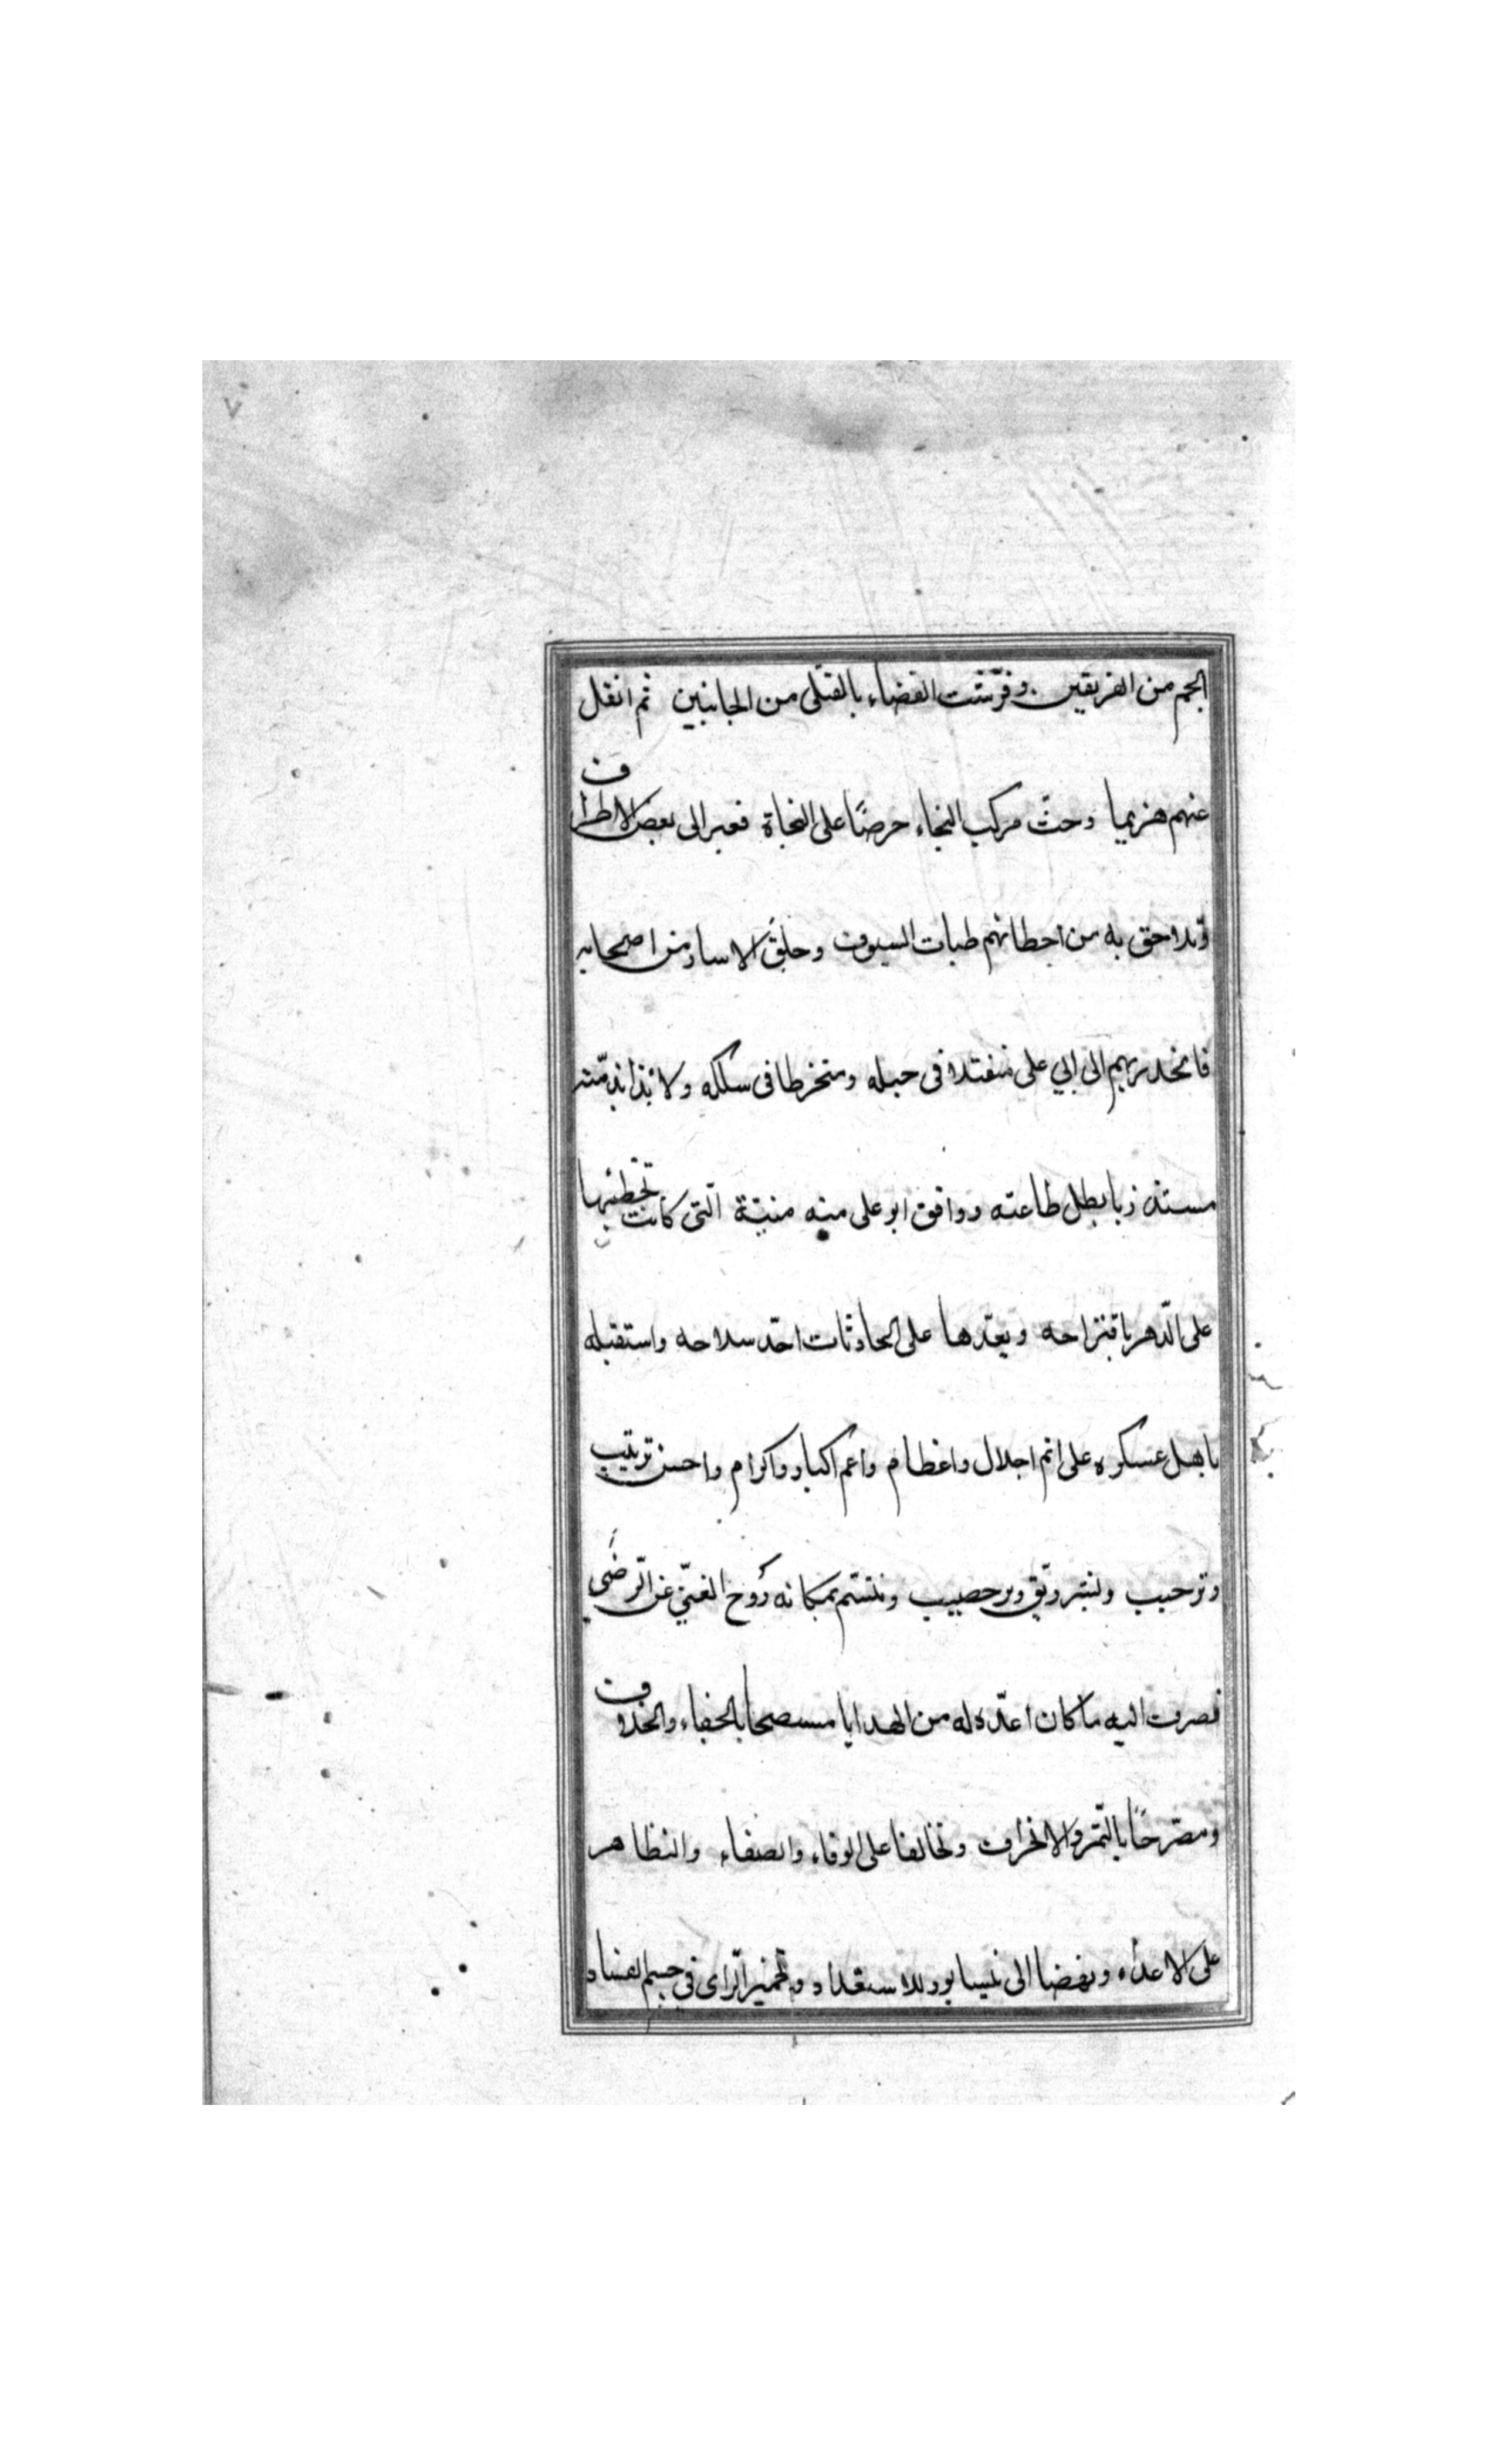 ٧
الجم من الفريقين. وفرّشت الفضاء بالقتلى من الجانبين ثم انفل
عنهم هزيما وحثّ مركب النجاء حرصًا على النجاة فعبر الى بعض الاطراف
وتلاحق به من اخطاتهم ظبات السيوف وحلق الاسار من اصحابه
فانحدر بهم الى ابي على منفتلا فى حبله ومنخرطا فى سلكه ولائذا بذمّته
مستذريا بظل طاعته ووافق ابو على منه منيّة الّتى كانت تخطيها
على الدّهر باقتراحه ويعدّها على الحادثات احدّ سلاحه واستقبله
باهل عسكره على اتم اجلال واعظام واعم اكبار واكرام واحسن ترتيب
وترحيب وتنسم بمكانه رَوح الغنىّ عن الرّضَى
فصرف اليه ما كان اعدّه له من الهدايا بالجفاء والخلاف
ومصرّحًا بالتّمرّد والانحراف وتحالفا على الوفاء والصفاء والتظاهر
على الاعدٰاء ونهضا الى نيسابور للاستعداد وتخمير الرّاى فى جسم الفساد